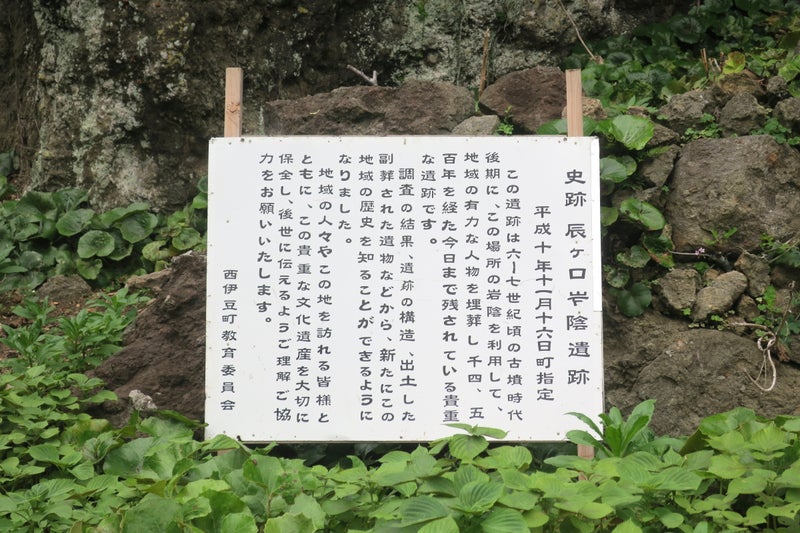 史跡 辰ヶ口岩陰遺跡
平成十年十一月十六日町指定
この遺跡は六ー七世紀頃の古墳時代
後期に、この場所の岩陰を利用して、
地域の有力な人物を埋葬し千四、五
百年を経た今日まで残されている貴重
な遺跡です。
調査の結果、遺跡の構造、出土した
副葬された遺物などから、新たにこの
地域の歴史を知ることができるように
なりました。
地域の人々やこの地を訪れる皆様と
ともに、この貴重な文化遺産を大切に
保全し、後世に伝えるようご理解ご協
力をお願いいたします。
西伊豆町教育委員会